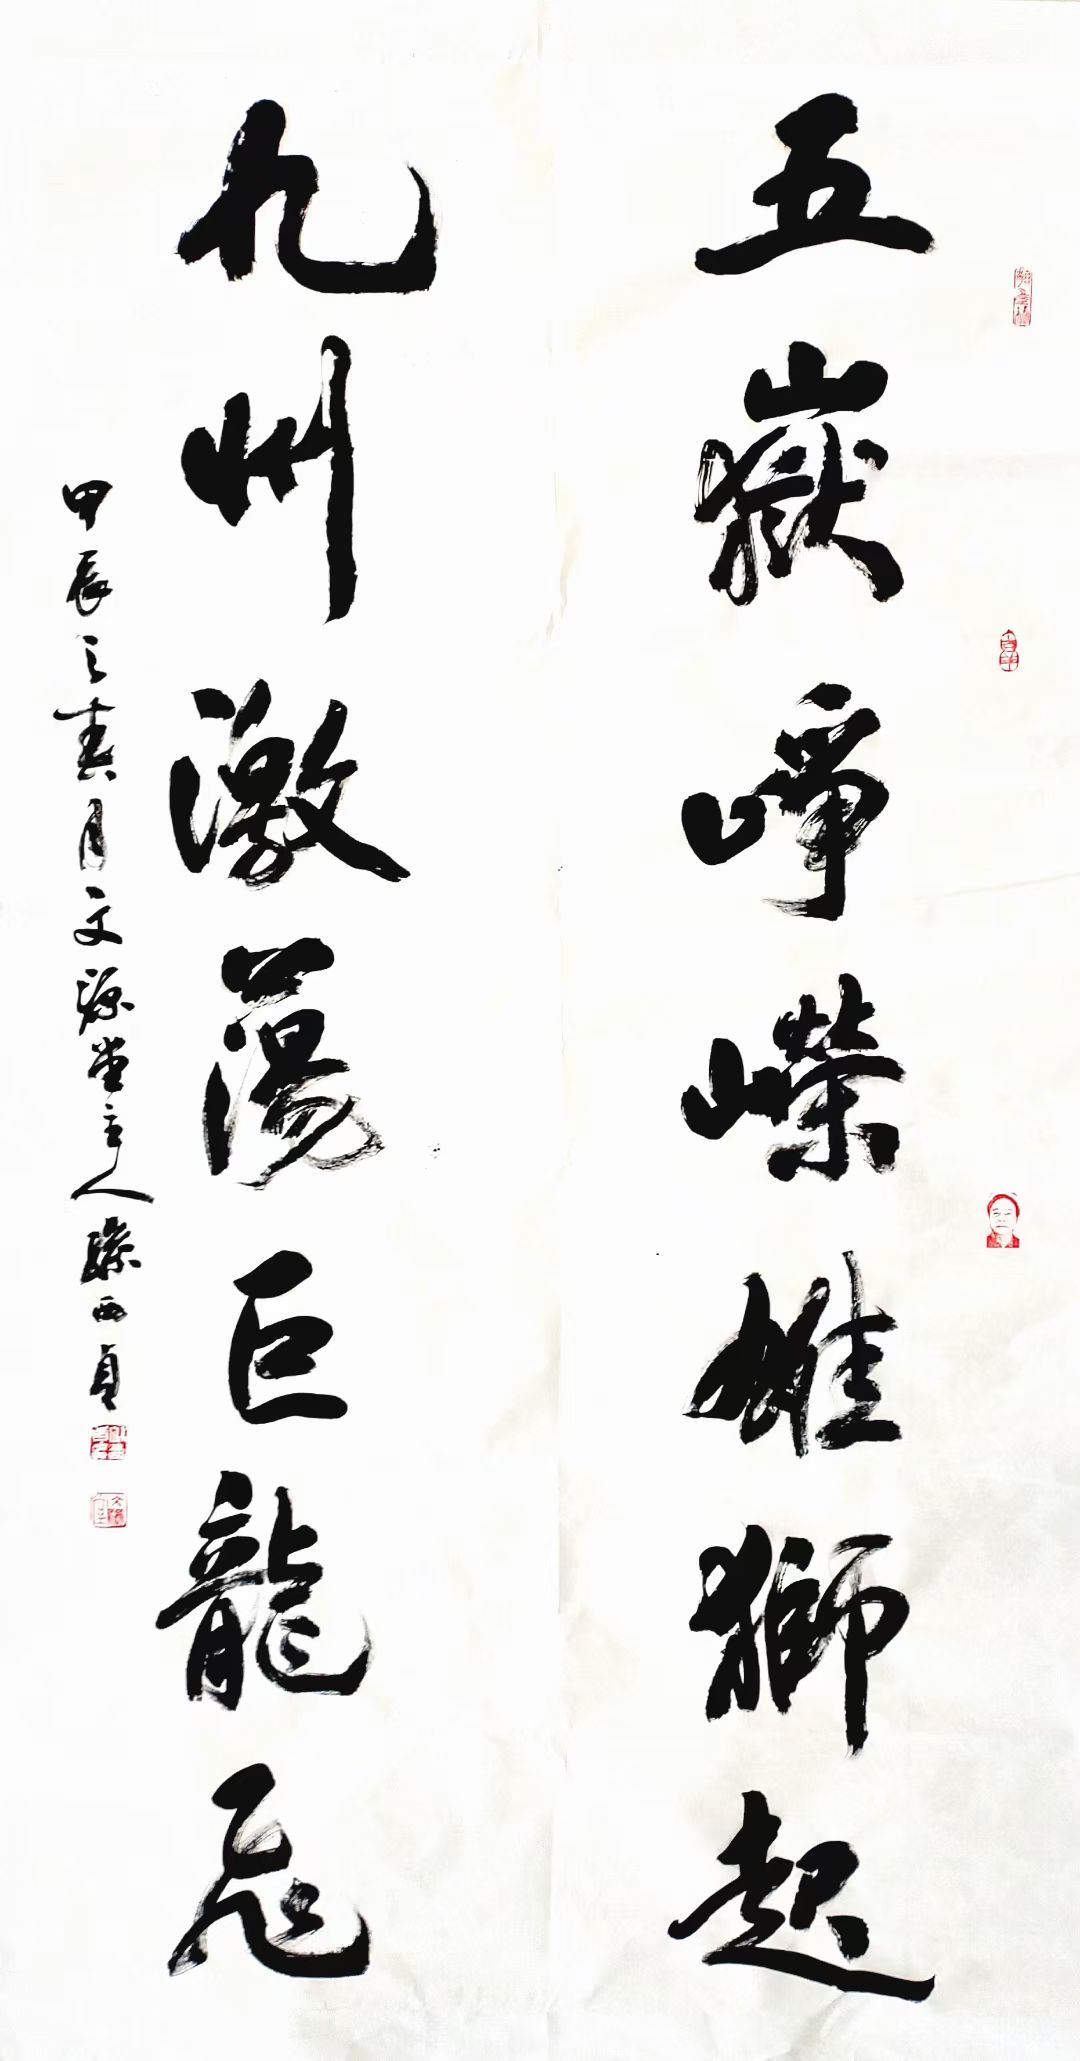 五嶽崢嶸雄獅起
九州激蕩巨龍飛
甲辰之春月文源堂主人孫西貞